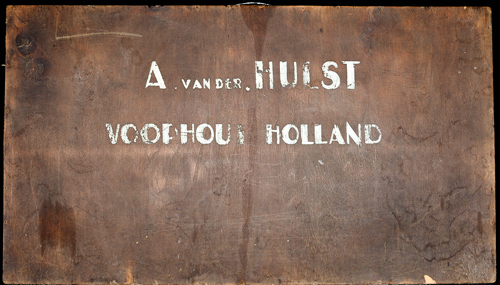 A. VAN DER. HULST
VOORHOUT HOLLAND